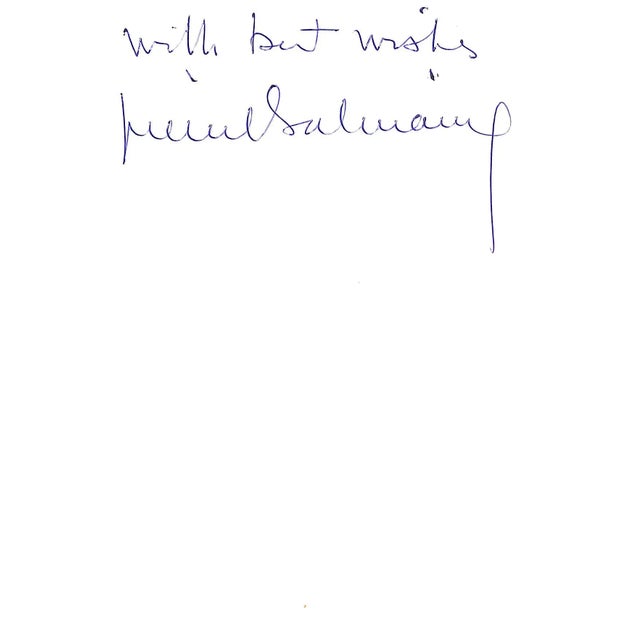 with best wishes
pierre Balmain